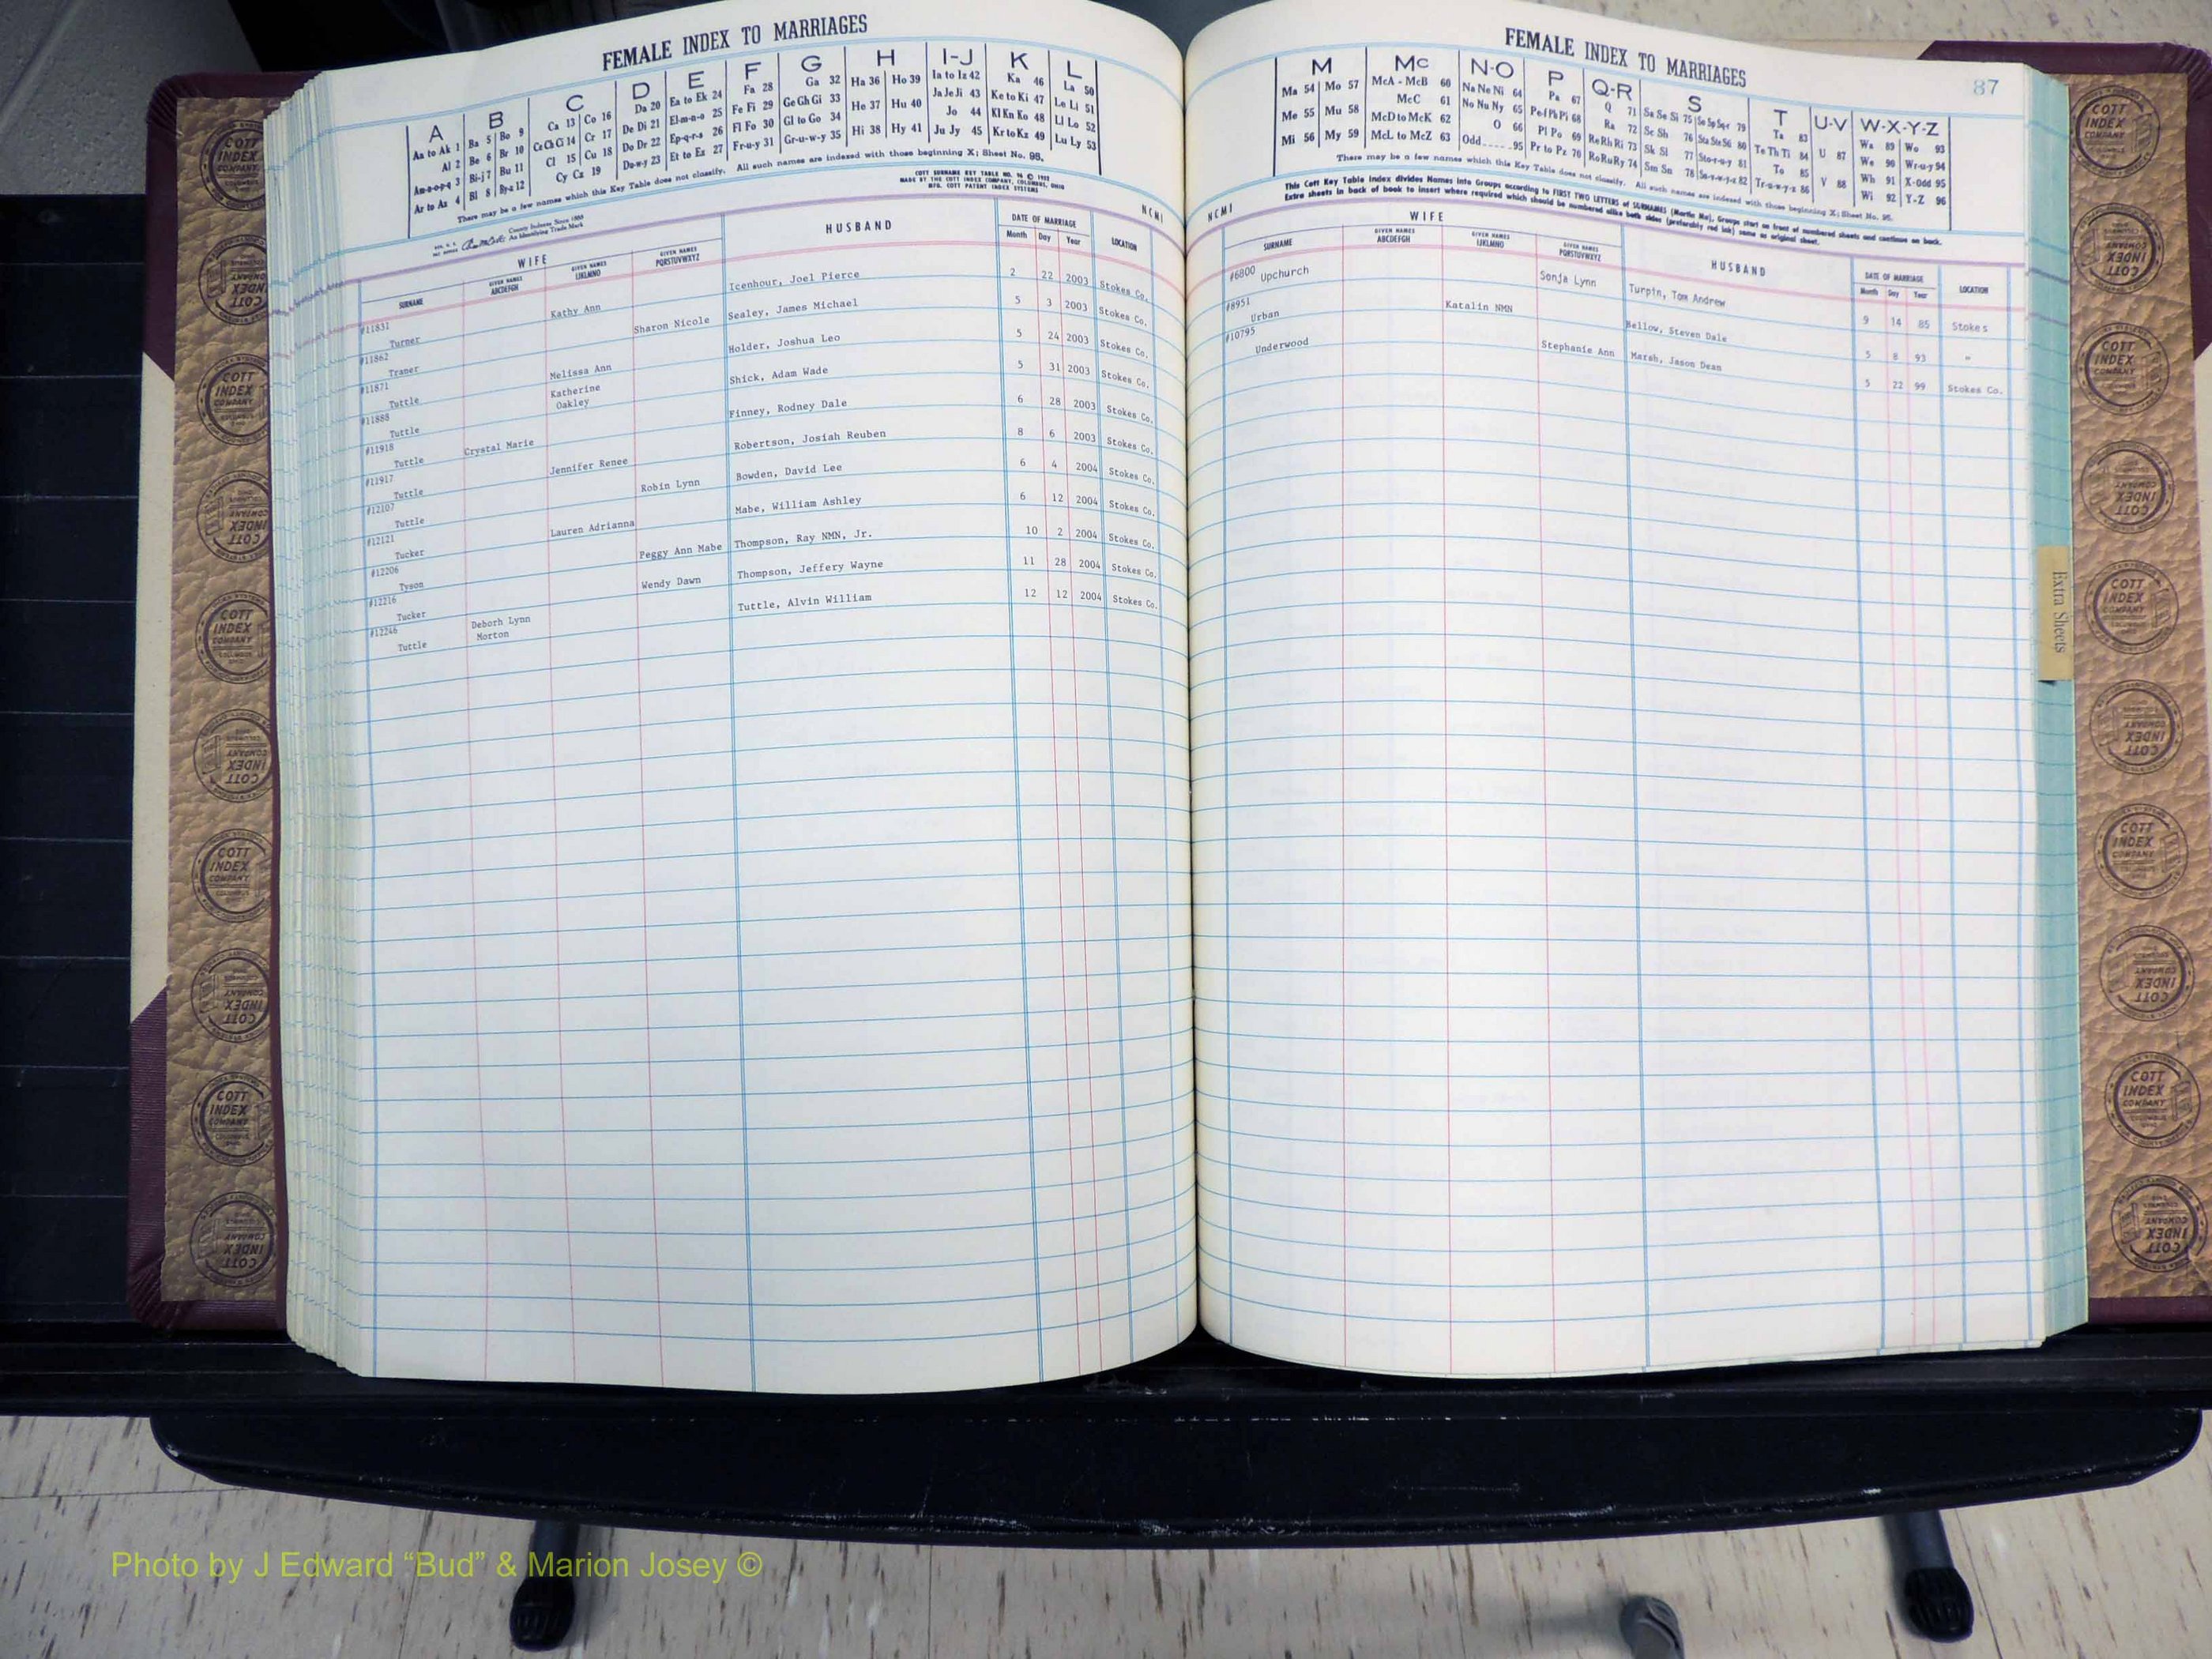 FEMALE INDEX TO MARRIAGES
A B C D E F G H I-J K L
Aa to Ak 1 Ba 5 Bo 9 Ca 13 Co 16 Da 20 Ea to Ek 24 Fa 28 Ga 32 Ha 36 Ho 39 Ia to Iz 42 Ka 46 La 50
Al 2 Be 6 Br 10 Ce Ch Ci 14 Cr 17 De Di 21 El-m-n-o 25 Fe Fi 29 Ge Gh Gi 33 He 37 Hu 40 Ja Je Ji 43 Ke to Ki 47 Le Li 51
Am-n-o-p-q 3 Bi-j 7 Bu 11 Cl 15 Cu 18 Do Dr 22 Ep-q-r-s 26 Fl Fo 30 Gl to Go 34 Hi 38 Hy 41 Jo 44 Kl Kn Ko 48 Ll Lo 52
Ar to Az 4 Bl 8 By-z 12 Cy Cz 19 Du-w-y 23 Et to Ez 27 Fr-u-y 31 Gr-u-w-y 35 Ju Jy 45 Kr to Kz 49 Lu Ly 53
There may be a few names which this Key Table does not classify. All such names are indexed with those beginning X; Sheet No. 95.
COTT SURNAME KEY TABLE NO. 96 ©
MADE BY THE COTT INDEX COMPANY, COLUMBUS, OHIO
MFG. COTT PATENT INDEX SYSTEMS
County Indexes Since 1888
An Identifying Trade Mark
NCMI
WIFE HUSBAND DATE OF MARRIAGE LOCATION
SURNAME GIVEN NAMES ABCDEFGH GIVEN NAMES IJKLMNO GIVEN NAMES PQRSTUVWXYZ Month Day Year
#11831 Turner Kathy Ann Icenhour, Joel Pierce 2 22 2003 Stokes Co.
#11862 Traner Sharon Nicole Sealey, James Michael 5 3 2003 Stokes Co.
#11871 Tuttle Melissa Ann Holder, Joshua Leo 5 24 2003 Stokes Co.
#11888 Tuttle Katherine Oakley Shick, Adam Wade 5 31 2003 Stokes Co.
#11918 Tuttle Crystal Marie Finney, Rodney Dale 6 28 2003 Stokes Co.
#11917 Tuttle Jennifer Renee Robertson, Josiah Reuben 8 6 2003 Stokes Co.
#12107 Tuttle Robin Lynn Bowden, David Lee 6 4 2004 Stokes Co.
#12121 Tucker Lauren Adrianna Mabe, William Ashley 6 12 2004 Stokes Co.
#12206 Tyson Peggy Ann Mabe Thompson, Ray NMN, Jr. 10 2 2004 Stokes Co.
#12216 Tucker Wendy Dawn Thompson, Jeffery Wayne 11 28 2004 Stokes Co.
#12246 Tuttle Deborh Lynn Morton Tuttle, Alvin William 12 12 2004 Stokes Co.
FEMALE INDEX TO MARRIAGES
87
M Mc N-O P Q-R S T U-V W-X-Y-Z
Ma 54 Mo 57 McA - McB 60 Na Ne Ni 64 Pa 67 Q 71 Sa Se Si 75 Sp Sq 79 Ta 83 U 87 Wa 89 Wo 93
Me 55 Mu 58 McC 61 No Nu Ny 65 Pe Pf Ph Pi 68 Ra 72 Sc Sh 76 Sta Ste Sti 80 Te Th Ti 84 V 88 We 90 Wr-u-y 94
Mi 56 My 59 McD to McK 62 O 66 Pl Po 69 Re Rh Ri 73 Sk Sl 77 Sto-r-u-y 81 To 85 Wh 91 X-Odd 95
McL to McZ 63 Odd 95 Pr to Pz 70 Ro Ru Ry 74 Sm Sn 78 Su-v-w-y-z 82 Tr-u-w-y-z 86 Wi 92 Y-Z 96
There may be a few names which this Key Table does not classify. All such names are indexed with those beginning X; Sheet No. 95.
This Cott Key Table Index divides Names into Groups according to FIRST TWO LETTERS of SURNAMES (Martin Ma). Groups start on front of numbered sheets and continue on back.
Extra sheets in back of book to insert where required which should be numbered alike both sides (preferably red ink) same as original sheet.
NCMI
WIFE HUSBAND DATE OF MARRIAGE LOCATION
SURNAME GIVEN NAMES ABCDEFGH GIVEN NAMES IJKLMNO GIVEN NAMES PQRSTUVWXYZ Month Day Year
#6800 Upchurch Sonja Lynn Turpin, Tom Andrew 9 14 85 Stokes
#8951 Urban Katalin NMN Bellow, Steven Dale 5 8 93 "
#10795 Underwood Stephanie Ann Marsh, Jason Dean 5 22 99 Stokes Co.
Extra Sheets
COTT INDEX COMPANY COLUMBUS OHIO
Photo by J Edward “Bud” & Marion Josey ©